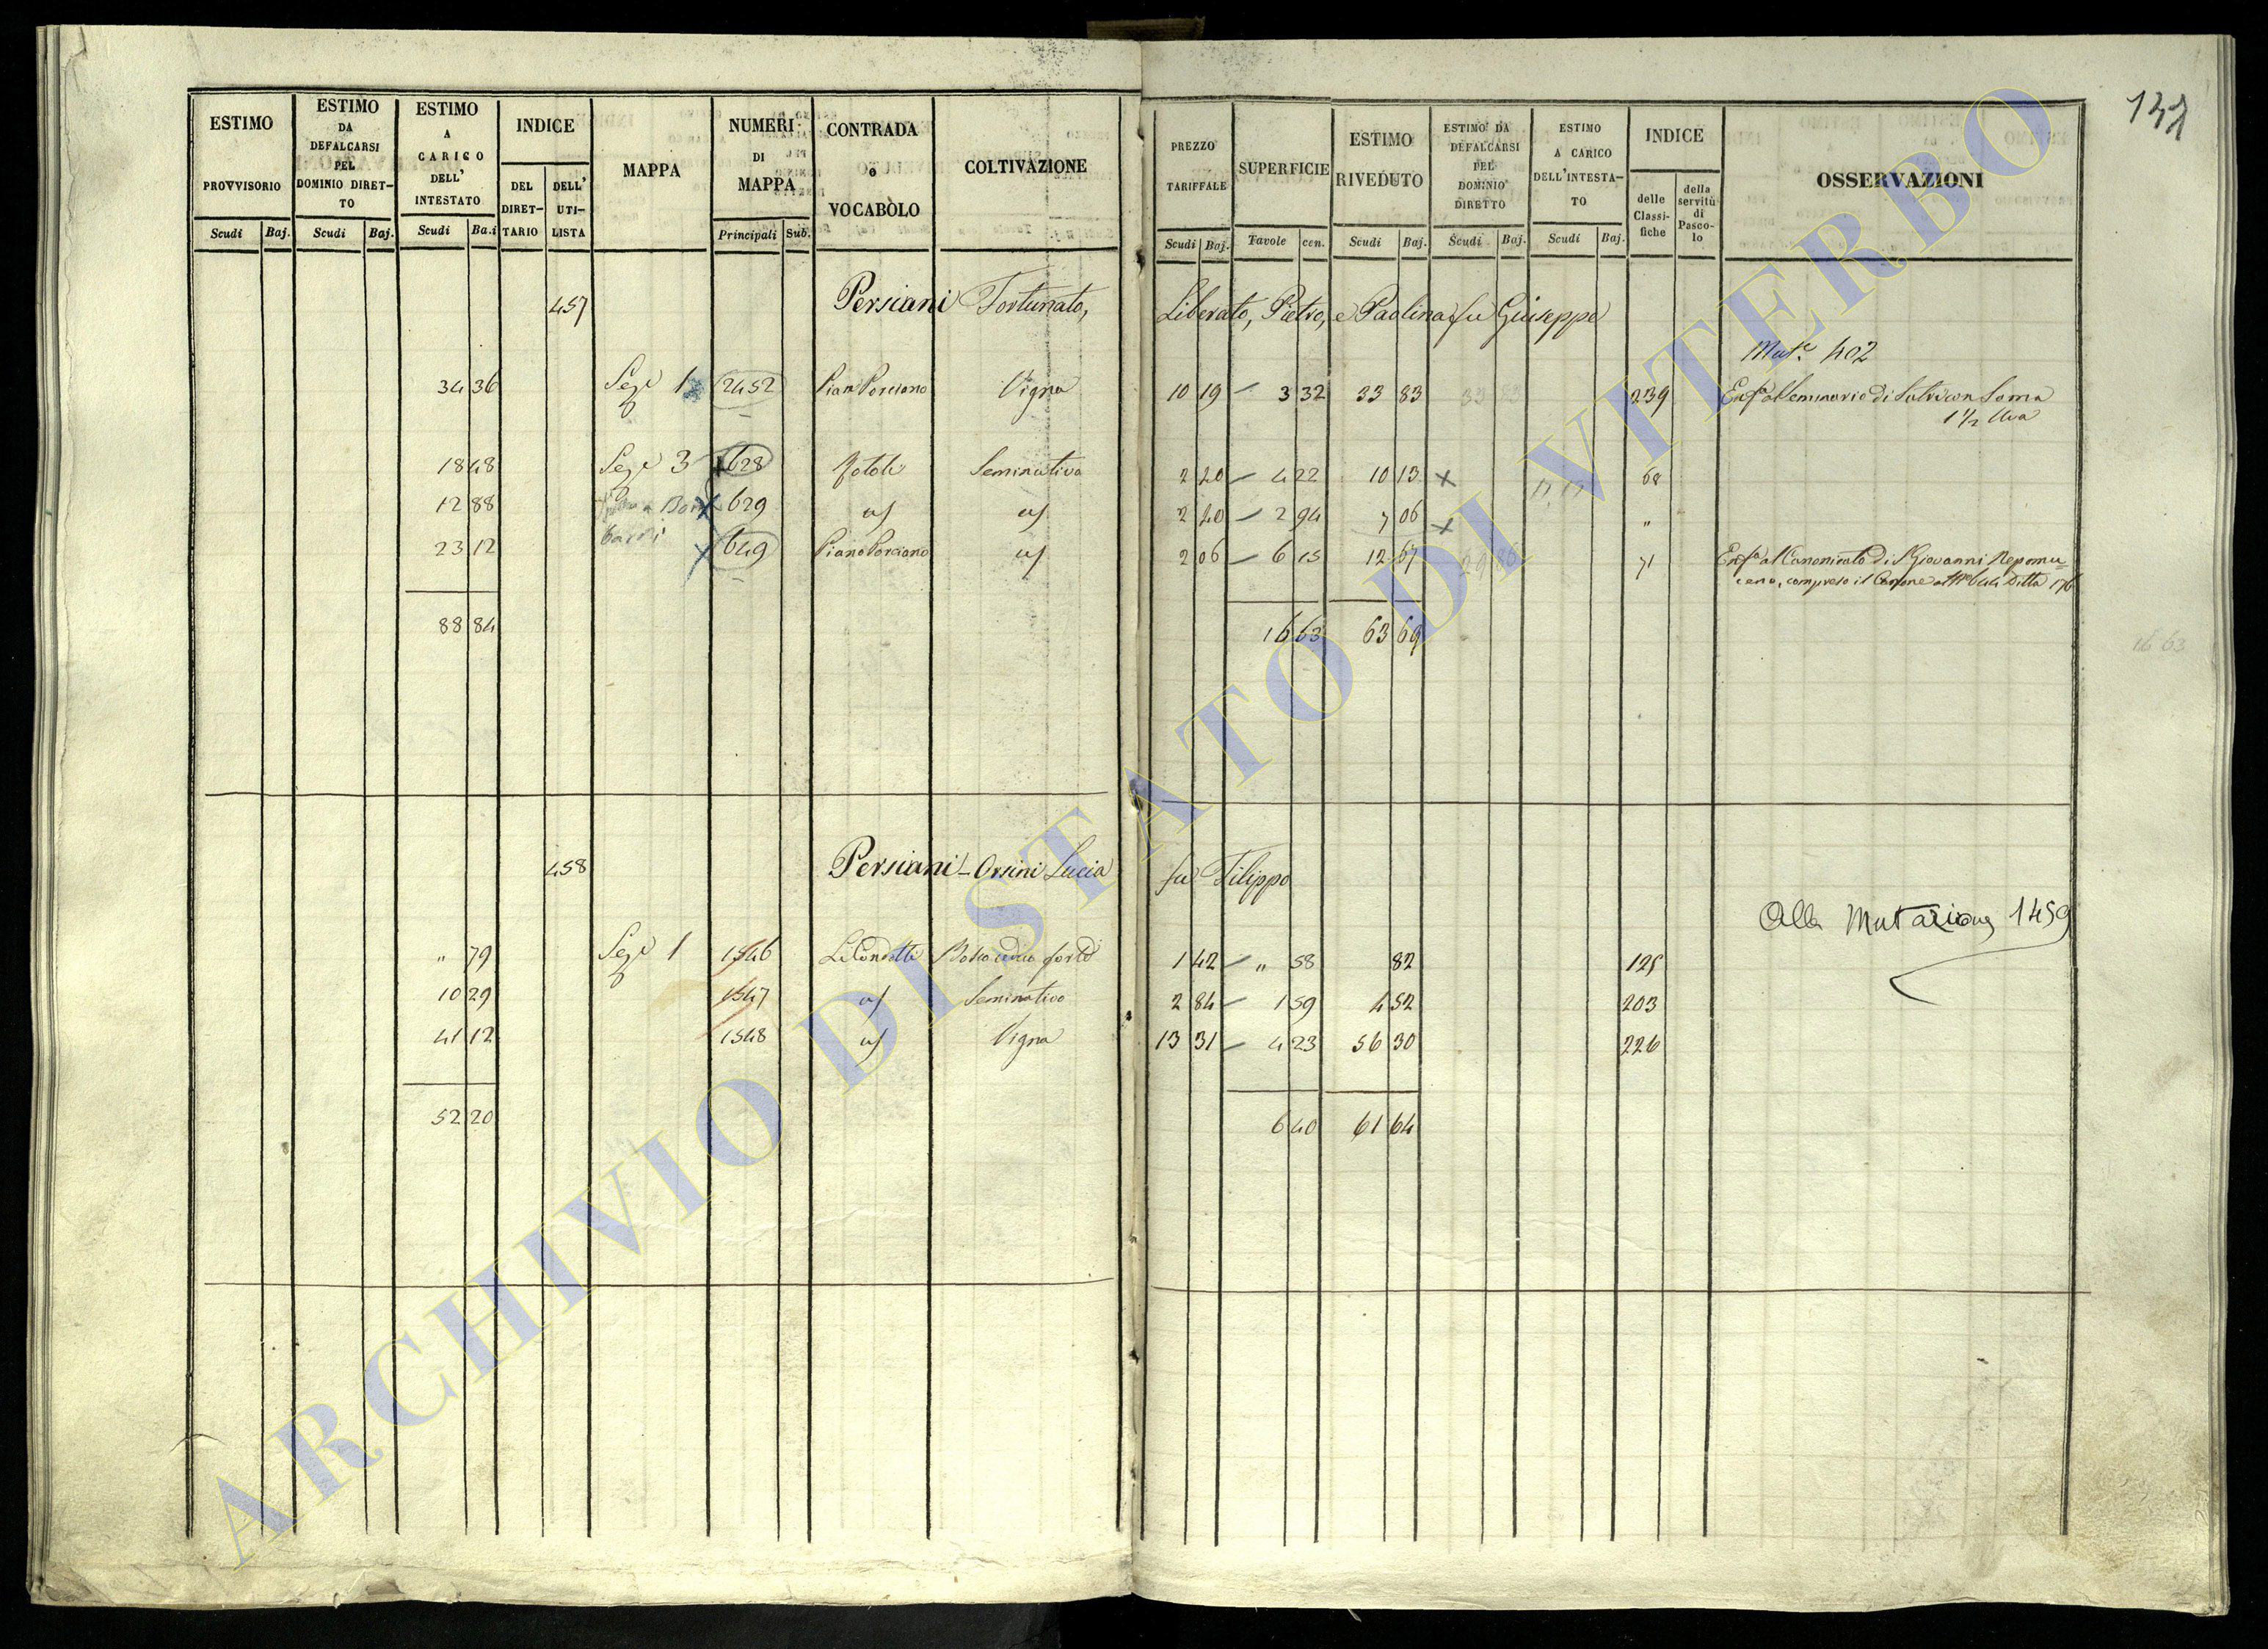 ESTIMO PROVVISORIO Scudi Baj.
ESTIMO DA DEFALCARSI PEL DOMINIO DIRET-TO Scudi Baj.
ESTIMO A CARICO DELL' INTESTATO Scudi Ba.i
INDICE DEL DIRET-TARIO DELL' UTI-LISTA
MAPPA
NUMERI DI MAPPA Principali Sub.
CONTRADA o VOCABOLO
COLTIVAZIONE
PREZZO TARIFFALE Scudi Baj.
SUPERFICIE Tavole cen.
ESTIMO RIVEDUTO Scudi Baj.
ESTIMO DA DEFALCARSI PEL DOMINIO DIRETTO Scudi Baj.
ESTIMO A CARICO DELL'INTESTA-TO Scudi Baj.
INDICE delle Classi-fiche della servitù di Pasco-lo
OSSERVAZIONI
132
457 Persiani Fortunato, Liberato, Pietro, e Paolina fu Giuseppe
Mut.e 402
34 36 Sez.e 1 2452 Pian Porciano Vigna 10 19 3 32 33 83 33 83 239 Enf.a al Seminario di Sutri con Soma
1 1/2 Uva
18 48 Sez.e 3 628 Seminativo 2 40 4 22 10 13 x 68
12 88 x 629 id 2 40 2 94 7 06 x "
23 12 x 649 Piano Porciano id 2 06 6 15 12 67 29 86 71 Enf.a al Canonicato di S. Giovanni Nepomu=
ceno, compreso il Canone al N. 644 Ditta 176
88 84 16 63 63 69
16 63
458 Persiani-Orsini Lucia fu Filippo
Alla Mutazione 1459
" 79 Sez.e 1 1546 Li Condotti Bosco ceduo forte 1 42 " 58 82 125
10 29 1547 id Seminativo 2 84 1 59 4 52 203
41 12 1548 id Vigna 13 31 4 23 56 30 226
52 20 6 40 61 64
ARCHIVIO DI STATO DI VITERBO